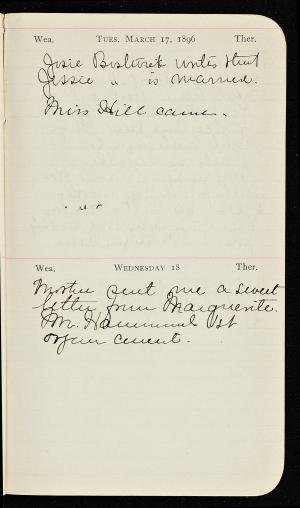 Wea. TUES. MARCH 17, 1896 Ther.
Josie writes that
Jessie " is married.
Miss Hill came.
Wea. WEDNESDAY 18 Ther.
Mother sent me a sweet
letter from Marguerite.
Mr. Hammond's 1st
organ concert.